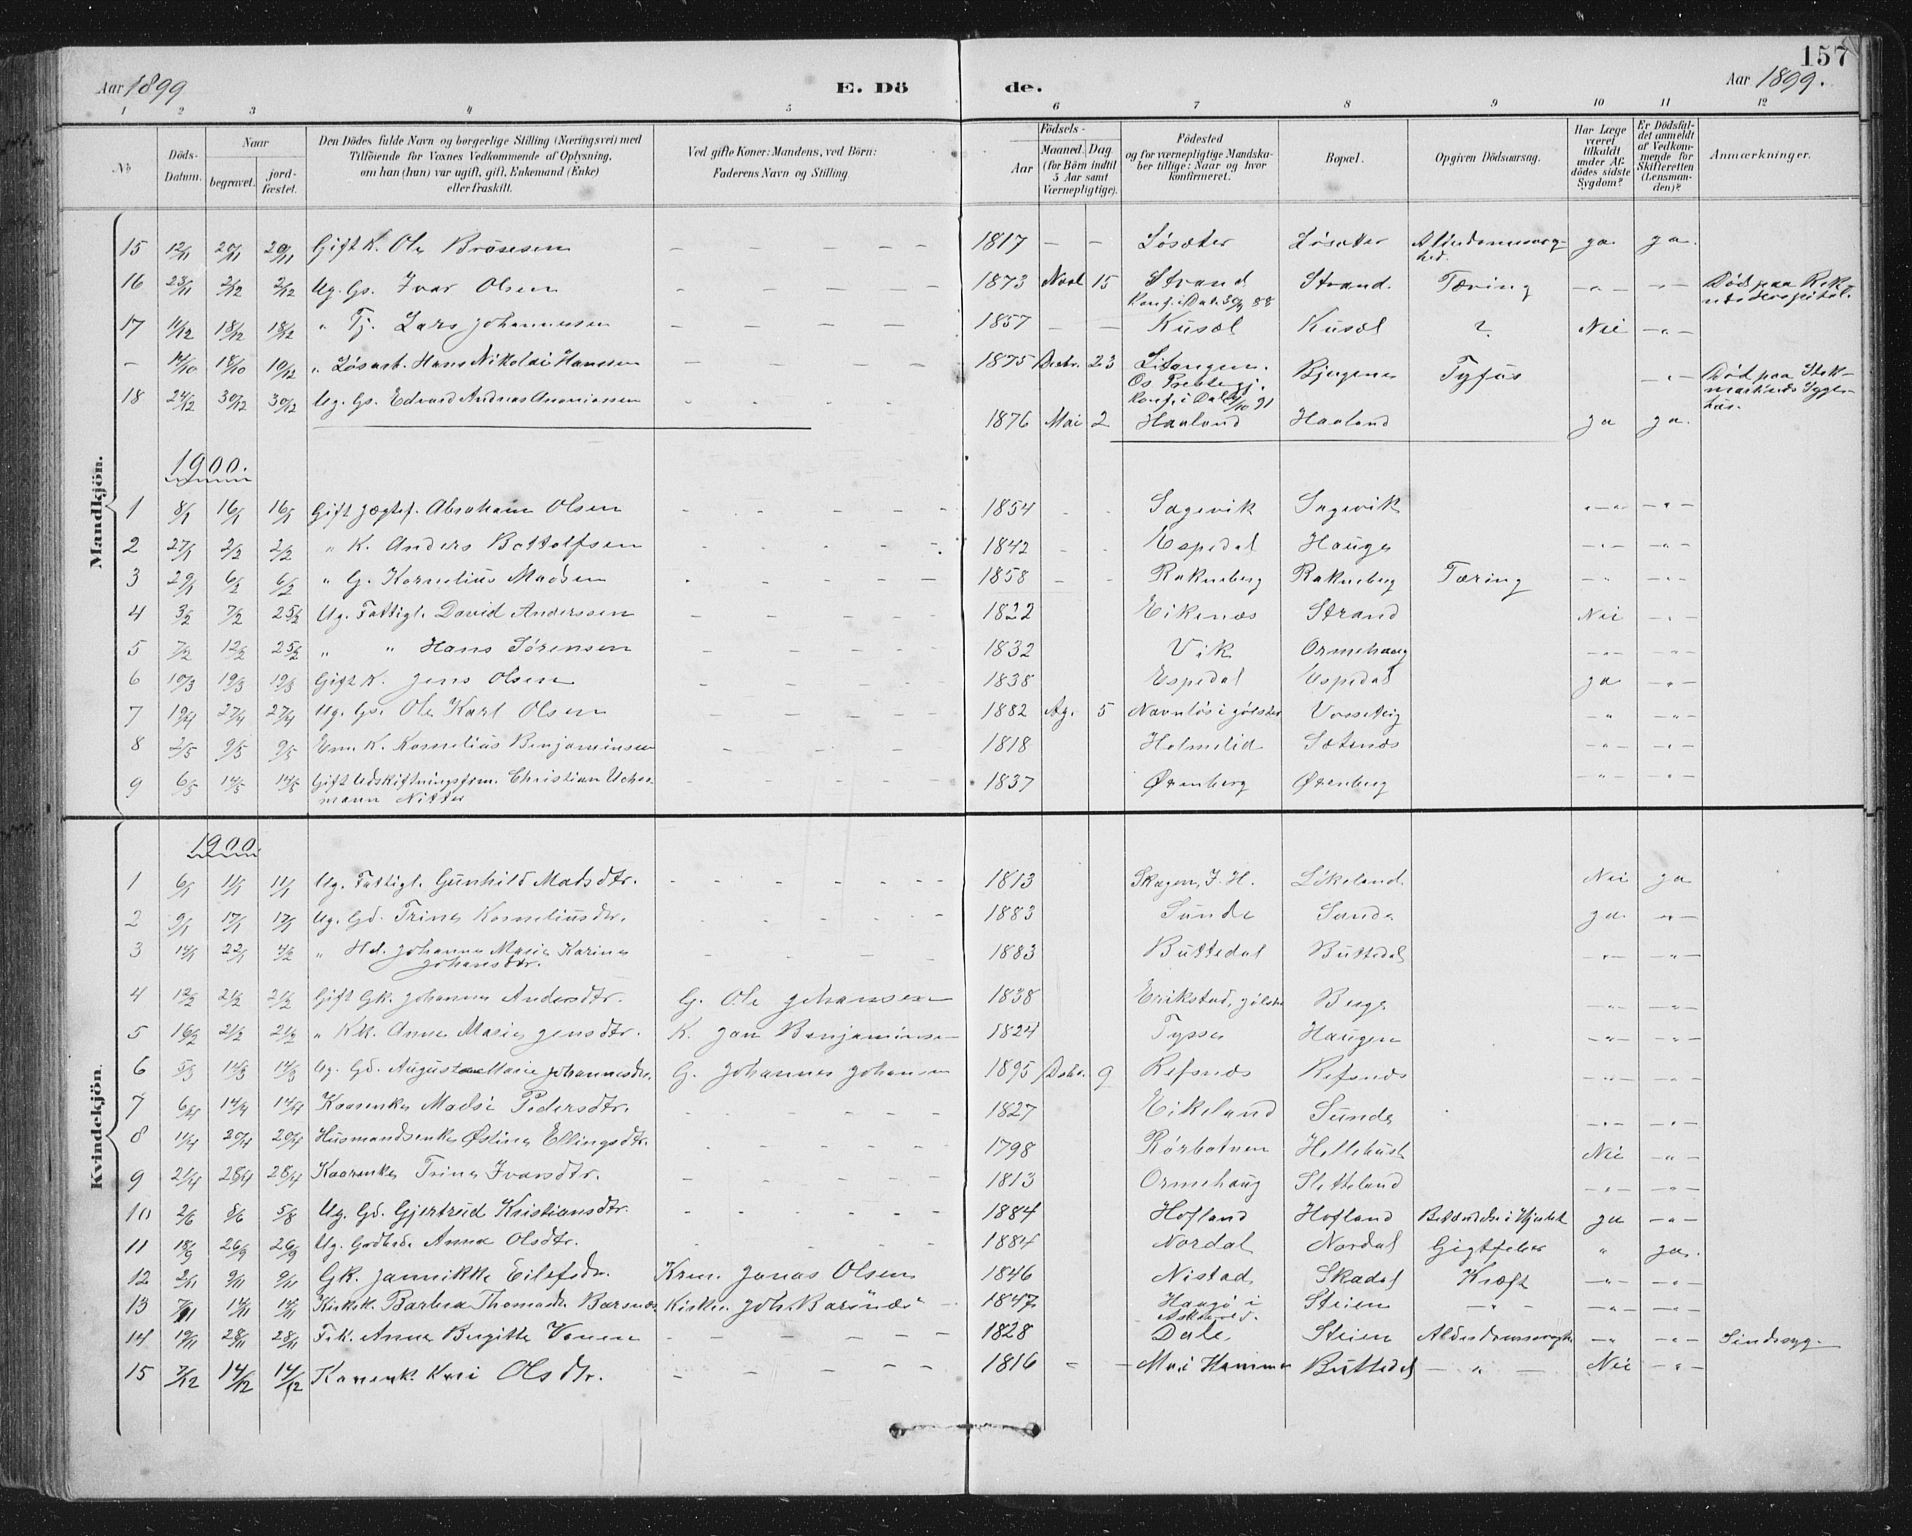 157
Aar 1899
E. Dö
de.
Aar 1899.
1 2 3 4 5 6 7 8 9 10 11 12
No
Döds-Datum.
Naar
begravet.
jord-fæstet.
Den Dödes fulde Navn og borgerlige Stilling (Næringsvei) med
Tilföiende for Voxnes Vedkommende af Oplysning,
om han (hun) var ugift, gift, Enkemand (Enke)
eller fraskilt.
Ved gifte Koner: Mandens, ved Börn:
Faderens Navn og Stilling.
Födsels-
Aar
Maaned. Dag
(for Börn indtil
5 Aar samt
Værnepligtige).
Födested
og for værnepligtige Mandska-
ber tillige: Naar og hvor
konfirmeret.
Bopæl.
Opgiven Dödsaarsag.
Har Læge
været
tilkaldt
under Af-
dödes sidste
Sygdom?
Er Dödsfal-
det anmeldt
af Vedkom-
mende for
Skifteretten
(Lensman-
den)?
Anmærkninger.
Mandkjön.
15 12/11 20/11 20/11 Gift K. Ole Brösesen - - - - - 1817 - - Løsæter Løsæter ja ja
16 23/11 2/12 2/12 Ug. Gs. Ivar Olsen - - - - - 1873 Novbr 15 Strand Strand. Tæring -"- -"- Död paa
Konf. i Dale 88
17 11/12 18/12 18/12 " Tj. Lars Johannessen - - - - - 1857 - - Kusæl Kusæl ? Nei -"-
- 14/10 18/10 10/12 " Løsarb. Hans Nikolai Hanssen - - - - - 1875 Decbr. 23 Bjergene Tyfus -"- Död paa Stok-
Os Prestegj. marknæs Syge-
hus.
18 24/12 30/12 30/12 Ug. Gs. Edvard Andreas Ananiassen Konf. i Dale 91
1876 Mai 2 Haaland Haaland ja ja.
1900.
1 8/1 16/1 16/1 Gift Jægtef. Abraham Olsen - - - - - 1854 - - Sagevik Sagevik -"- -"-
2 27/1 2/2 2/2 " K. Anders Bottolfsen - - - - - 1842 - - Espedal Hauge -"- -"-
3 29/1 6/2 6/2 " G. Kornelius Madsen - - - - - 1858 - - Rakneberg Rakneberg Tæring -"- -"-
4 3/2 7/2 25/2 Ug. Fattigl. David Anderssen - - - - - 1822 Eikenæs Strand Nei -"-
5 7/2 12/2 25/2 " " Hans Sørensen - - - - - 1832 Vik Ormehaug -"- -"-
6 10/3 19/3 19/3 Gift K. Jens Olsen - - - - - 1838 Espedal Espedal ja -"-
7 19/4 27/4 27/4 Ug. Gs. Ole Karl Olsen - - - - - 1882 Ag. 5 Navnløs i Jølster Vosseteig " -"-
8 2/5 9/5 9/5 Em. K. Kornelius Benjaminsen - - - - 1818 Holmelid Sætenæs -"- -"-
9 6/5 14/5 14/5 Gift Udskiftningsform. Christian Ucher-
mann Nitter - - - - - 1837 Øvenberg Øvenberg -"- -"-
Kvindekjön.
1900
1 6/1 11/1 11/1 Ug. Fattigl. Gunhild Madsdtr. - - - - - - 1813 Skagen, I. H. Løkeland. Nei ja
2 9/1 17/1 17/1 Ug. Gd. Trine Korneliusdtr. - - - - - 1883 Sunde Sunde ja -"-
3 14/1 22/1 4/2 " Hd. Johanne Marie Karine
Johansdtr. - - - - - 1883 Buttedal Buttedal -"- -"-
4 12/2 21/2 21/2 Gift Gk. Johanne Andersdtr. G. Ole Johansen 1838 Erikstad, Jølster Berge -"- -"-
5 16/2 21/2 21/2 " Kk. Anne Marie Jensdtr. K. Jan Benjaminsen 1824 Tysse Haugen -"- -"-
6 5/3 14/3 14/3 Ug. Gd. Augusta Marie Johannesdtr. G. Johannes Johansen 1895 Decbr. 9 Refsnæs Refsnæs -"- -"-
7 6/4 14/4 14/4 Kaarenke Madsi Pedersdtr. 1827 Eikeland Sunde -"- -"-
8 11/4 20/4 20/4 Husmandsenke Østine Ellingsdtr. - - - - - 1798 Rørbotnen Hellehust Nei -"-
9 21/4 28/4 28/4 Kaarenke Trine Ivarsdtr. - - - - - 1813 Ormehaug Sletteland -"- -"-
10 2/6 8/6 5/8 Ug. Gd. Gjertrud Kristiansdtr. - - - - - - 1884 Hofland Hofland ja -"-
11 18/9 26/9 26/9 Ug. Anna Olsdtr. - - - - - 1884 Nordal Nordal Gigtfeber " ja.
12 2/11 9/11 9/11 Gk. Jannikke Eilefsdtr. Jonas Olsen 1846 Nistad Skadal Kræft -"- -"-
13 7/11 14/11 14/11 Kirkek. Barbra Thomasdtr. Barsnæs Joh. Barsnæs 1847 Steien -"- -"- -"-
14 19/11 28/11 28/11 Anne Birgitte Vonen - - - - - 1828 Dale Steien -"- -"- Sindssyg.
15 7/12 14/12 14/12 Olsdtr. - - - - - 1816 - - Buttedal -"- Nei -"-